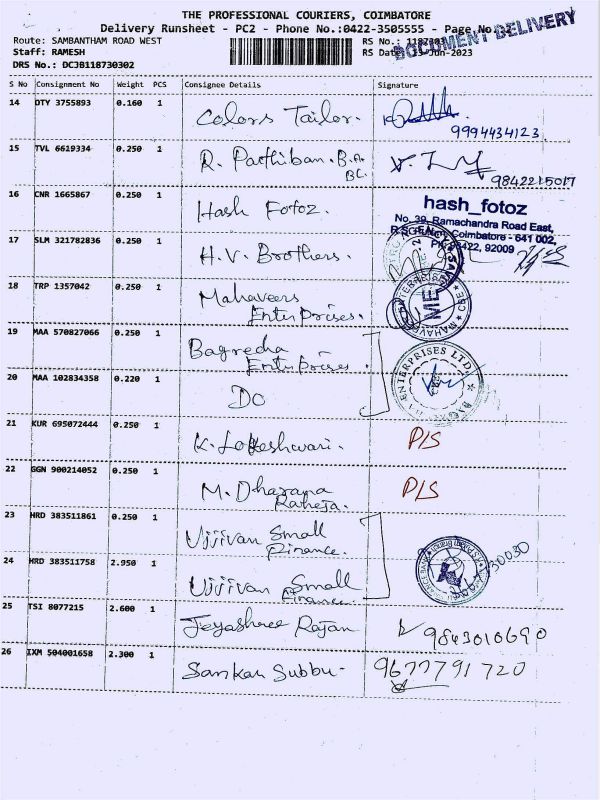 THE PROFESSIONAL COURIERS, COIMBATORE
Delivery Runsheet - PC2 - Phone No.:0422-3505555 - Page No.:
DOCUMENT DELIVERY
Route: SAMBANTHAM ROAD WEST RS No.:
Staff: RAMESH RS Date: 15-Jun-2023
DRS No.: DCJB118730302
S No Consignment No Weight PCS Consignee Details Signature
14 DTY 3755893 0.160 1 Colors Tailor. 9994434123
15 TVL 6619334 0.250 1 R. Parthiban. B.A. 9842215017
BC.
16 CNR 1665867 0.250 1 Hash Fotoz. hash_fotoz
No. 39, Ramachandra Road East,
Coimbatore - 641 002,
92009
17 SLM 321782836 0.250 1 H.V. Brothers.
18 TRP 1357042 0.250 1 Mahaveers
Enterprises.
19 MAA 570827066 0.250 1 Bagrecha
Enterprises. ENTERPRISES LTD.
20 MAA 102834358 0.220 1 DO
21 KUR 695072444 0.250 1 K. Lokeshwari. P/S
22 GGN 900214052 0.250 1 M. Dharana P/S
Raheja.
23 HRD 383511861 0.250 1 Ujjivan Small
Finance.
24 HRD 383511758 2.950 1 Ujjivan Small
Finance.
25 TSI 8077215 2.600 1 Jeyashree Rajan 9843010690
26 IXM 504001658 2.300 1 Sankar Subbu- 9677791720